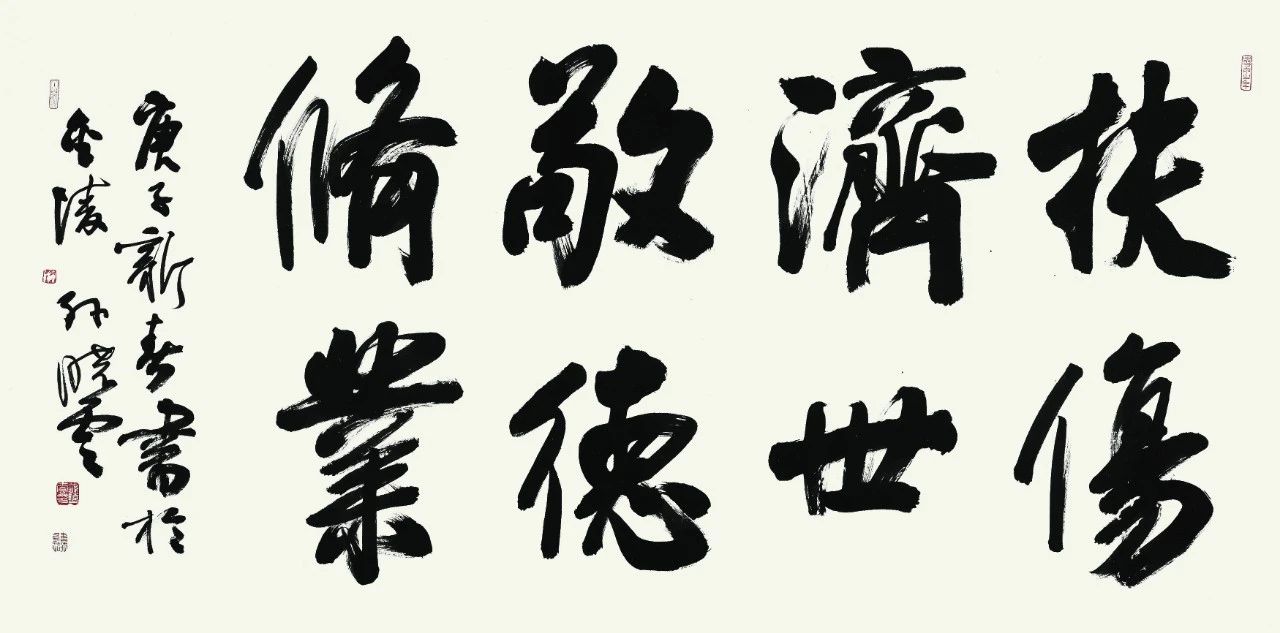 扶傷
濟世
敬德
脩業
庚子新春書於
金陵孫曉雲